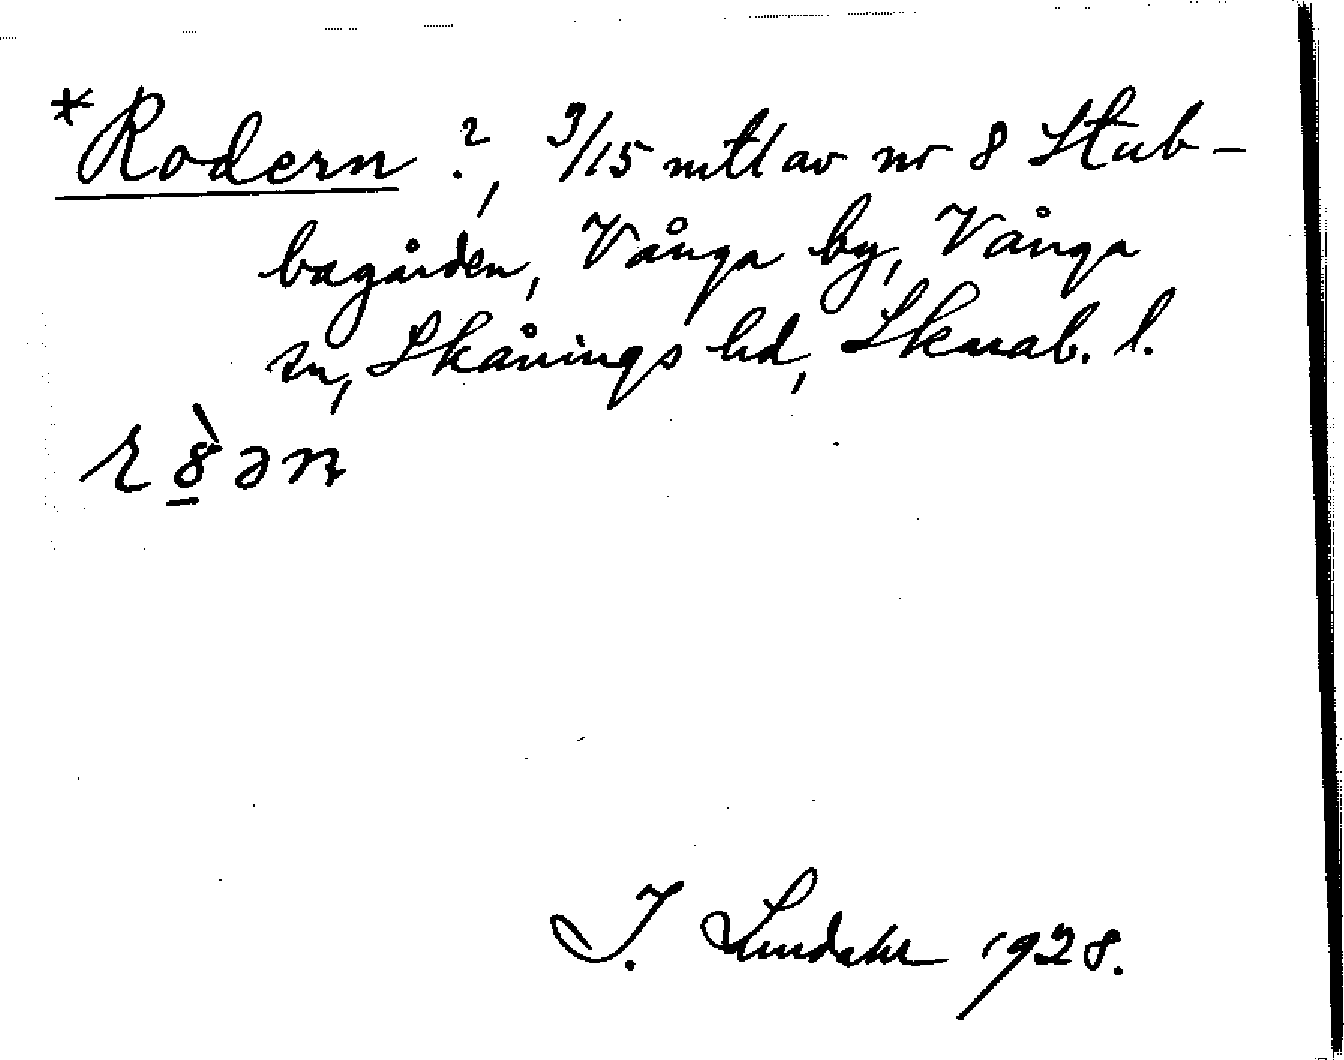 *Rodern ?, 3/15 mtl av nr 8 Stub-
bagården, Vånga by, Vånga
sn, Skånings hd, Skarab. l.
I. Lindahl 1928.